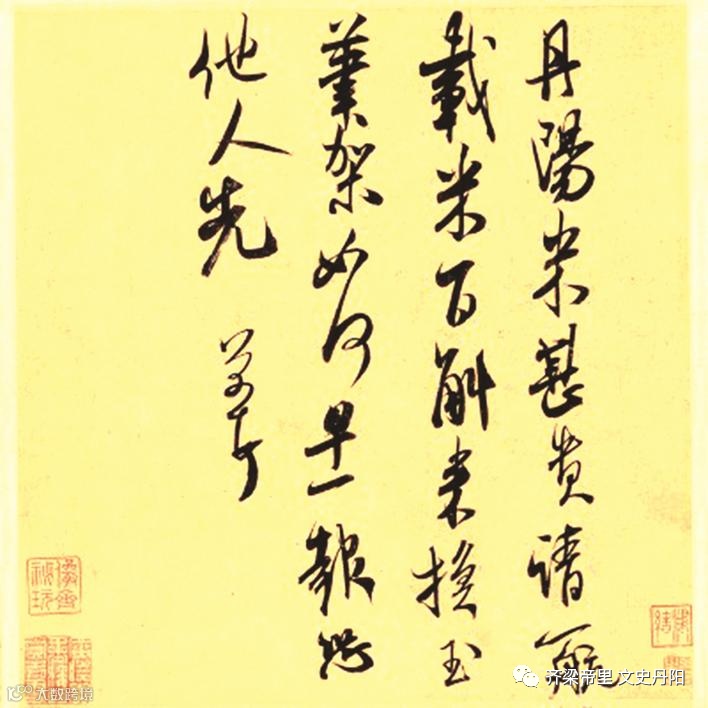 丹陽米甚貴請一航
載米百斛來換玉
筆架如何早一報恐
他人先 芾頓首
齐梁帝里 文史丹阳
大数跨境